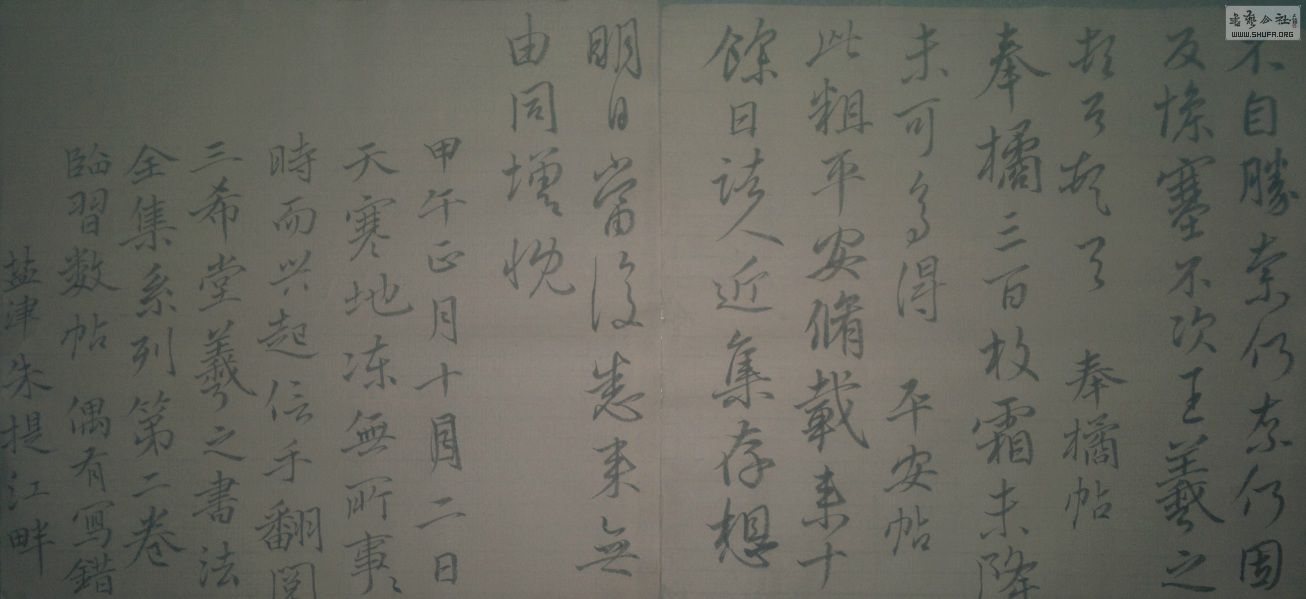 不自勝奈何奈何因
反慘塞不次王羲之
頓首頓首 奉橘帖
奉橘三百枚霜未降
未可多得 平安帖
此粗平安脩載来十
餘日諸人近集存想
明日當復悉来無
由同增慨
甲午正月十月二日
天寒地冻無所事々
時而兴起信手翻閱
三希堂羲之書法
全集系列第二卷
臨習数帖 偶有寫錯
盐津朱提江畔
書藝公社
WWW.SHUFA.ORG